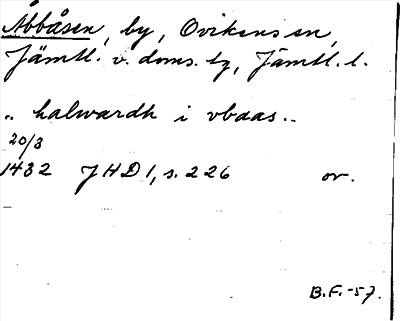 Åbbåsen, by, Ovikens sn,
Jämtl. v. doms. tg, Jämtl. l.
.. halwardh i vbaas ..
20/3
1432 JHD 1, s. 226 or.
B.F. -57.